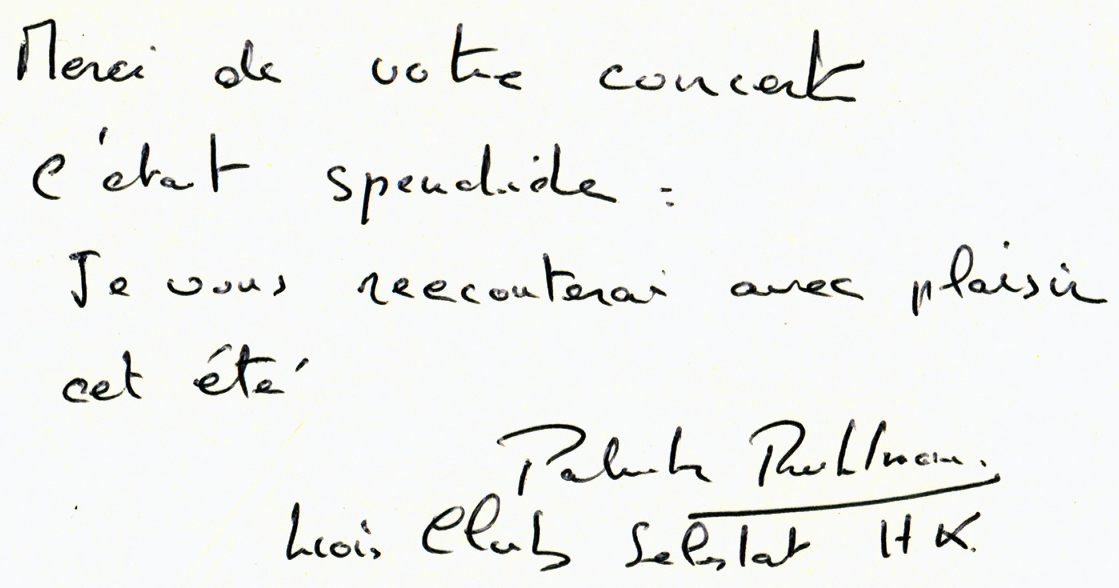 Merci de votre concert
c'était spendide :
Je vous reecouterai avec plaisir
cet été
Patrick Ruhlman.
Lions Club Selestat HK.